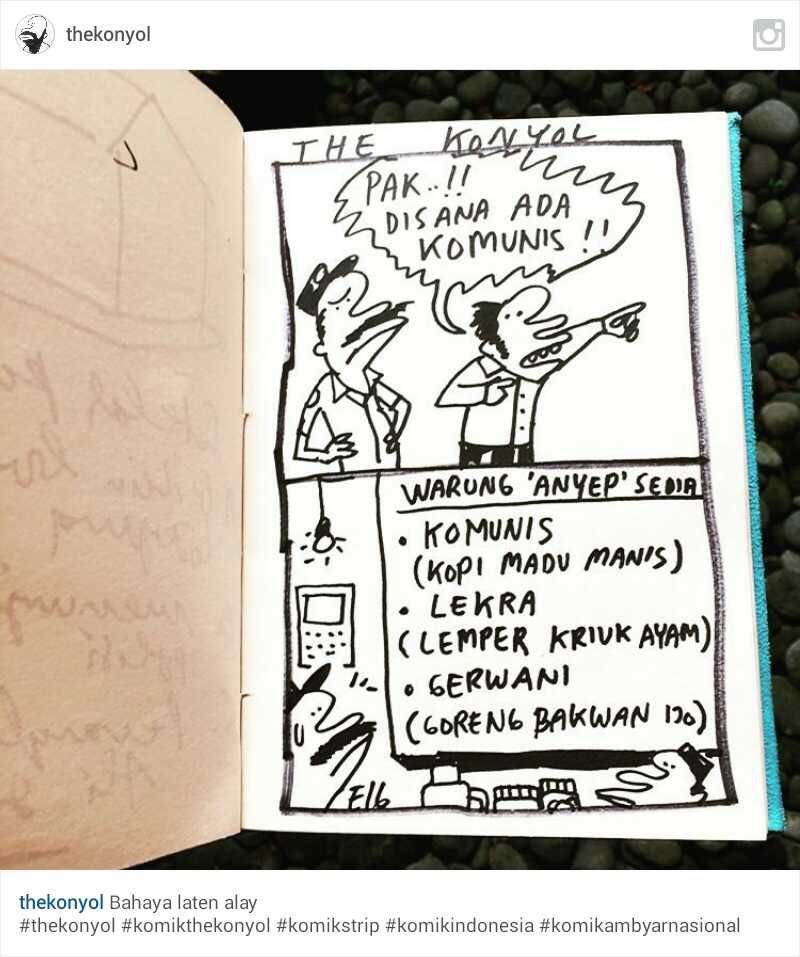 thekonyol
THE KONYOL
PAK..!!
DISANA ADA
KOMUNIS !!
WARUNG 'ANYEP' SEDIA
• KOMUNIS
(KOPI MADU MANIS)
• LEKRA
(LEMPER KRIUK AYAM)
• GERWANI
(GORENG BAKWAN IJO)
E16
thekonyol Bahaya laten alay
#thekonyol #komikthekonyol #komikstrip #komikindonesia #komikambyarnasional